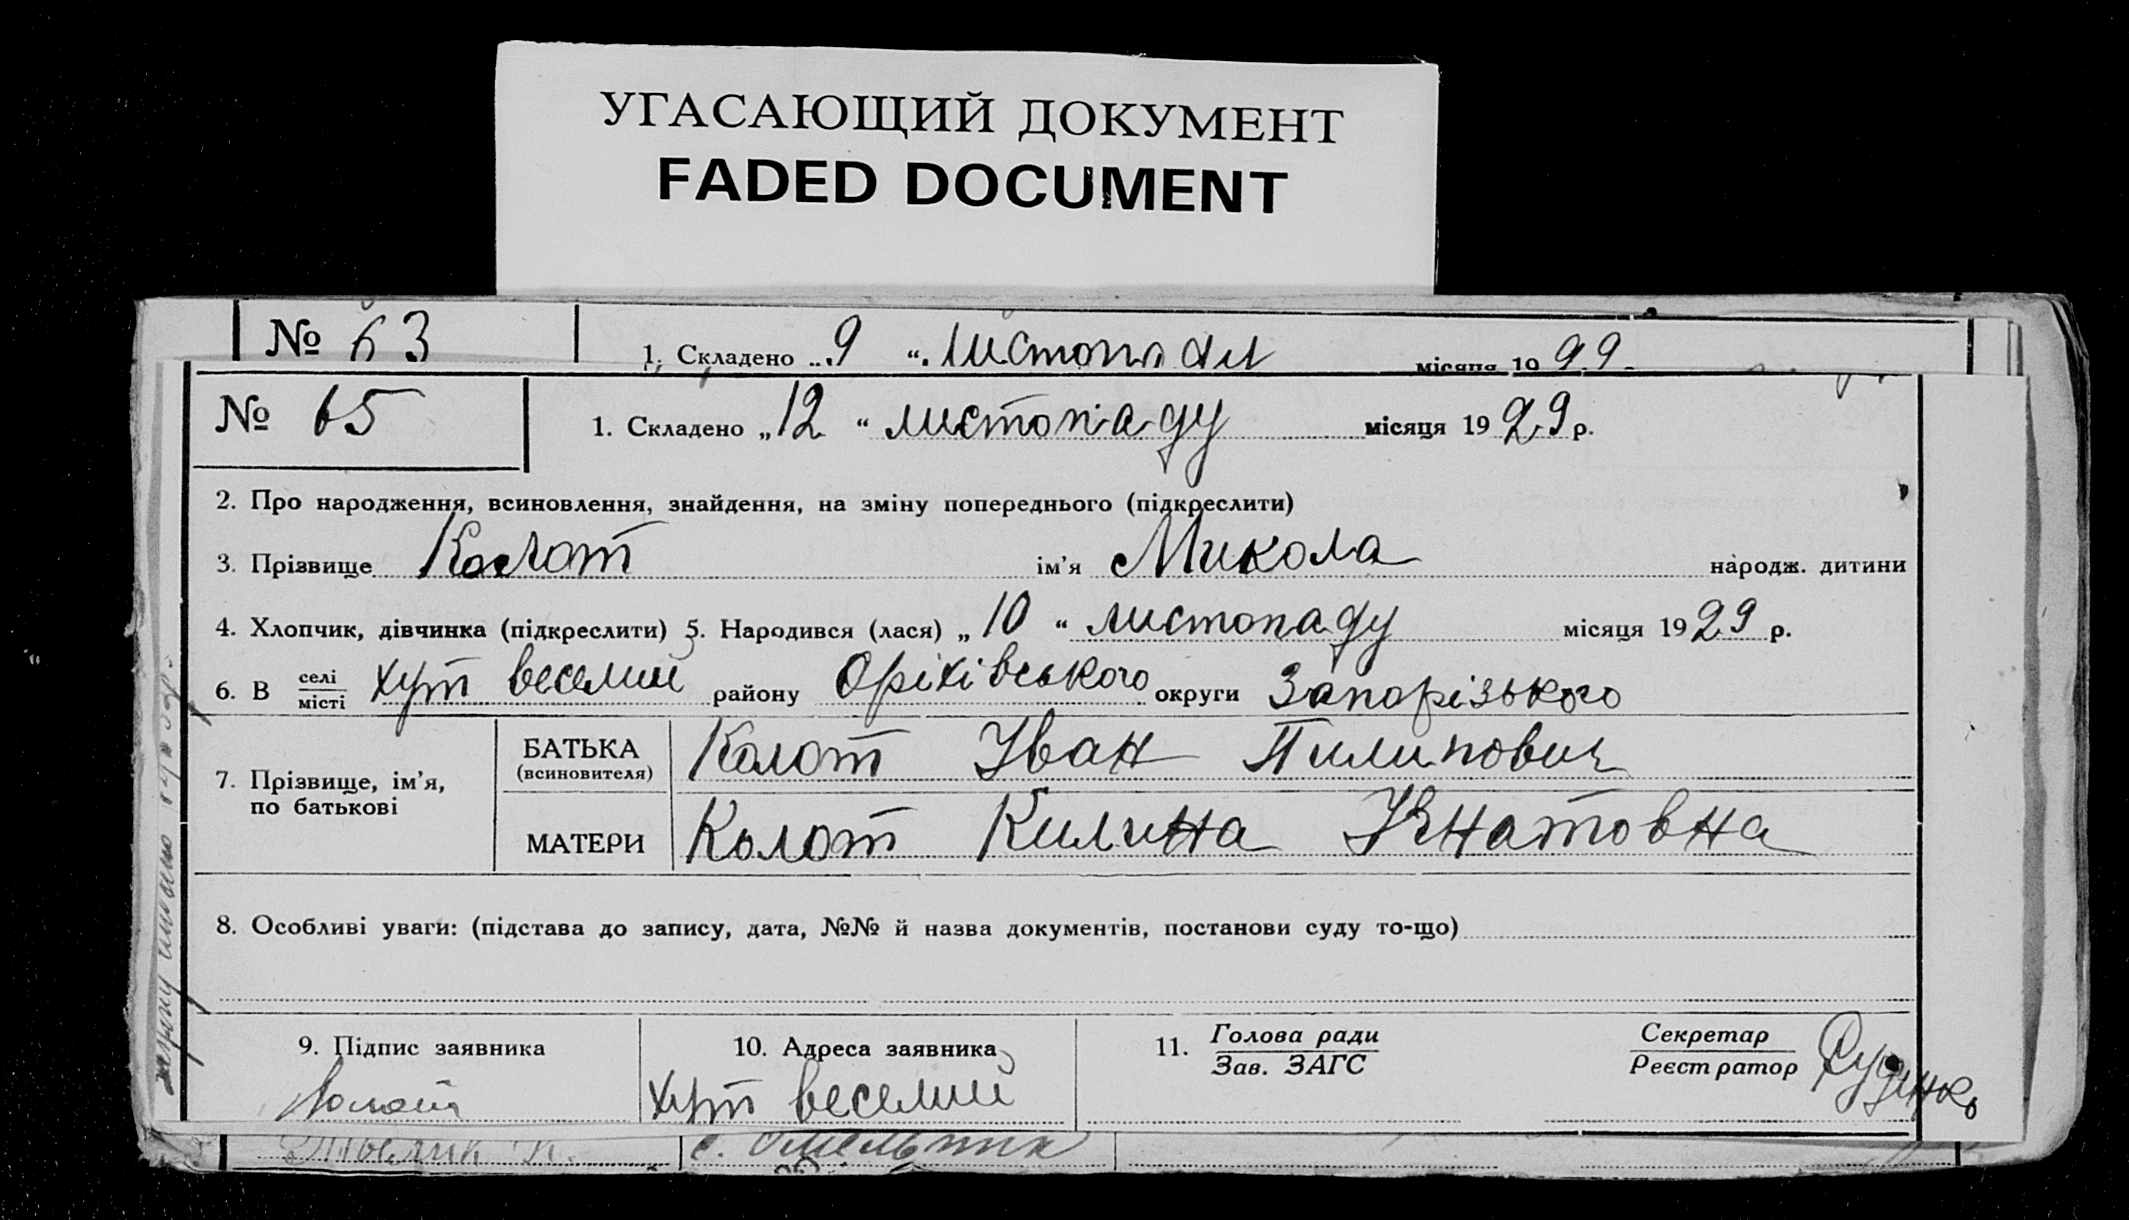 УГАСАЮЩИЙ ДОКУМЕНТ
FADED DOCUMENT
№ 63 1. Складено „ 9 “ листопада місяця 19
№ 65 1. Складено „ 12 “ листопаду місяця 19 29 р.
2. Про народження, всиновлення, знайдення, на зміну попереднього (підкреслити)
3. Прізвище Колот ім'я Микола народж. дитини
4. Хлопчик, дівчинка (підкреслити) 5. Народився (лася) „ 10 “ листопаду місяця 19 29 р.
6. В селі місті хут веселий району Оріхівського округи Запорізького
7. Прізвище, ім'я, по батькові
БАТЬКА (всиновителя) Колот Іван Пилипович
МАТЕРИ Колот Килина Ігнатовна
8. Особливі уваги: (підстава до запису, дата, №№ й назва документів, постанови суду то-що)
9. Підпис заявника
Колот
10. Адреса заявника
хут веселий
11. Голова ради
Зав. ЗАГС
Секретар
Реєстратор
с. Омельник